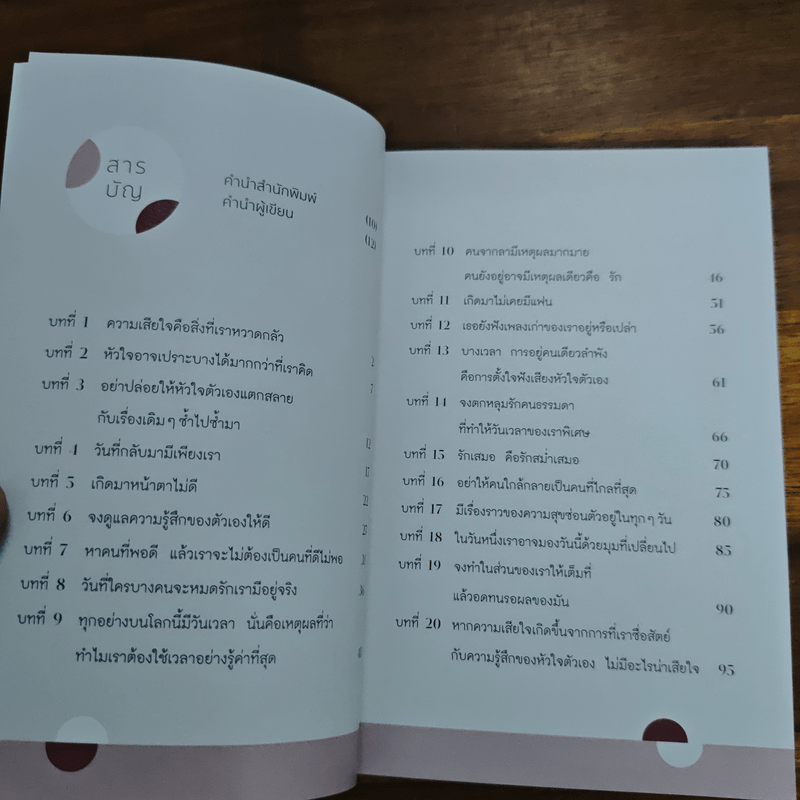 สาร
บัญ
คำนำสำนักพิมพ์ (10)
คำนำผู้เขียน (12)
บทที่ 1 ความเสียใจคือสิ่งที่เราหวาดกลัว 2
บทที่ 2 หัวใจอาจเปราะบางได้มากกว่าที่เราคิด 7
บทที่ 3 อย่าปล่อยให้หัวใจตัวเองแตกสลาย
กับเรื่องเดิมๆ ซ้ำไปซ้ำมา 12
บทที่ 4 วันที่กลับมามีเพียงเรา 17
บทที่ 5 เกิดมาหน้าตาไม่ดี 22
บทที่ 6 จงดูแลความรู้สึกของตัวเองให้ดี 27
บทที่ 7 หาคนที่พอดี แล้วเราจะไม่ต้องเป็นคนที่ดีไม่พอ
บทที่ 8 วันที่ใครบางคนจะหมดรักเรามีอยู่จริง
บทที่ 9 ทุกอย่างบนโลกนี้มีวันเวลา นั่นคือเหตุผลที่ว่า
ทำไมเราต้องใช้เวลาอย่างรู้ค่าที่สุด
บทที่ 10 คนจากลามีเหตุผลมากมาย
คนยังอยู่อาจมีเหตุผลเดียวคือ รัก 46
บทที่ 11 เกิดมาไม่เคยมีแฟน 51
บทที่ 12 เธอยังฟังเพลงเก่าของเราอยู่หรือเปล่า 56
บทที่ 13 บางเวลา การอยู่คนเดียวลำพัง
คือการตั้งใจฟังเสียงหัวใจตัวเอง 61
บทที่ 14 จงตกหลุมรักคนธรรมดา
ที่ทำให้วันเวลาของเราพิเศษ 66
บทที่ 15 รักเสมอ คือรักสม่ำเสมอ 70
บทที่ 16 อย่าให้คนใกล้กลายเป็นคนที่ไกลที่สุด 75
บทที่ 17 มีเรื่องราวของความสุขซ่อนตัวอยู่ในทุกๆ วัน 80
บทที่ 18 ในวันหนึ่งเราอาจมองวันนี้ด้วยมุมที่เปลี่ยนไป 85
บทที่ 19 จงทำในส่วนของเราให้เต็มที่
แล้วอดทนรอผลของมัน 90
บทที่ 20 หากความเสียใจเกิดขึ้นจากการที่เราซื่อสัตย์
กับความรู้สึกของหัวใจตัวเอง ไม่มีอะไรน่าเสียใจ 95